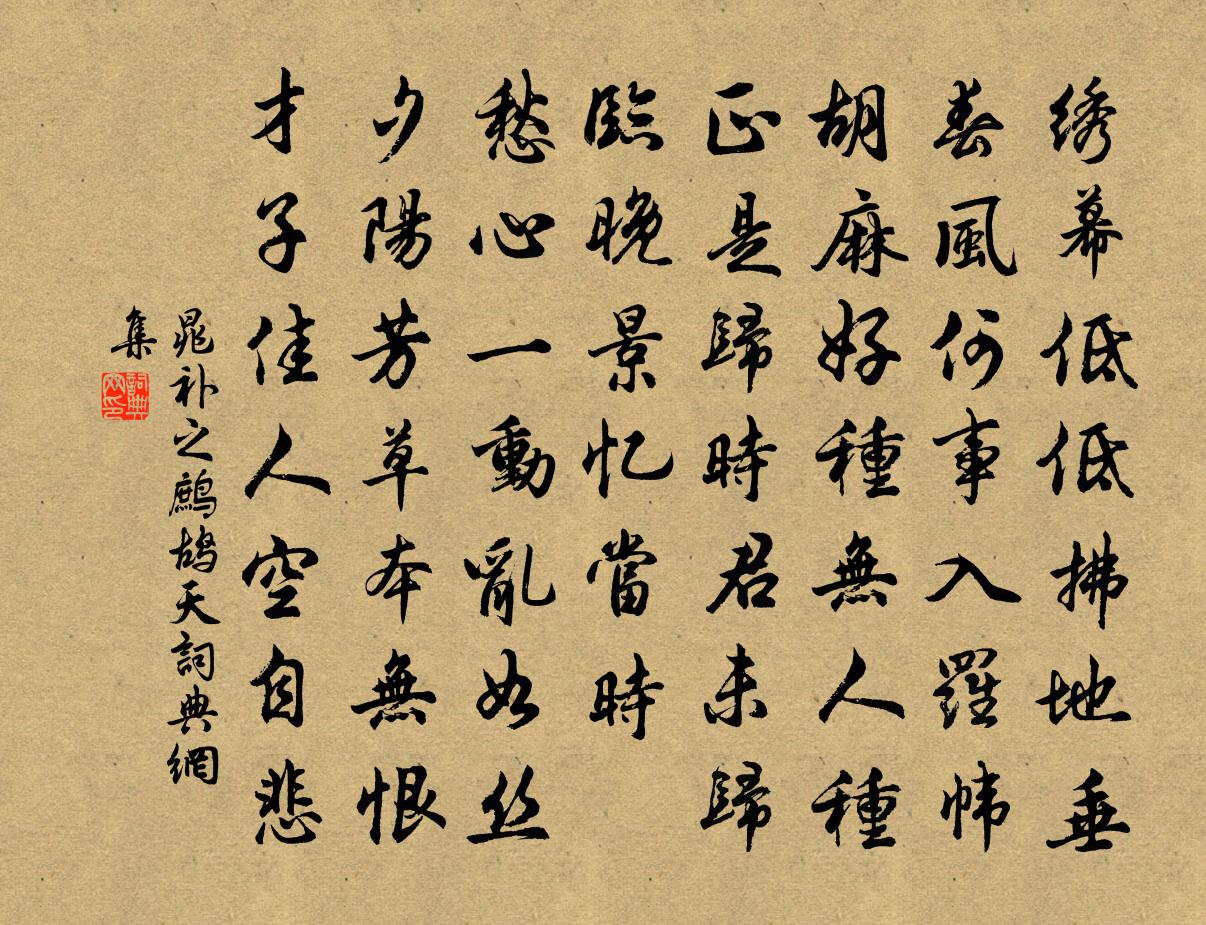 绣幕低低拂地垂
春風何事入羅帏
胡麻好種無人種
正是歸時君未歸
臨晚景忆當時
愁心一動亂如丝
夕陽芳草本無恨
才子佳人空自悲
晁补之鷓鴣天詞典網
集
詞典網印